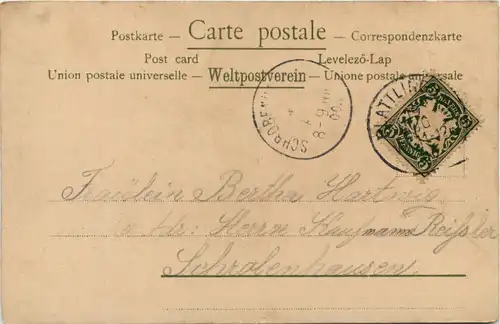 Postkarte — Carte postale — Correspondenzkarte
Post card Levelező-Lap
Union postale universelle — Weltpostverein — Unione postale universale
SCHROBENH
8-9
PLATTLING
Fräulein Bertha Hartwig
Adr: Herrn Kaufmann Reißler
Schrobenhausen.